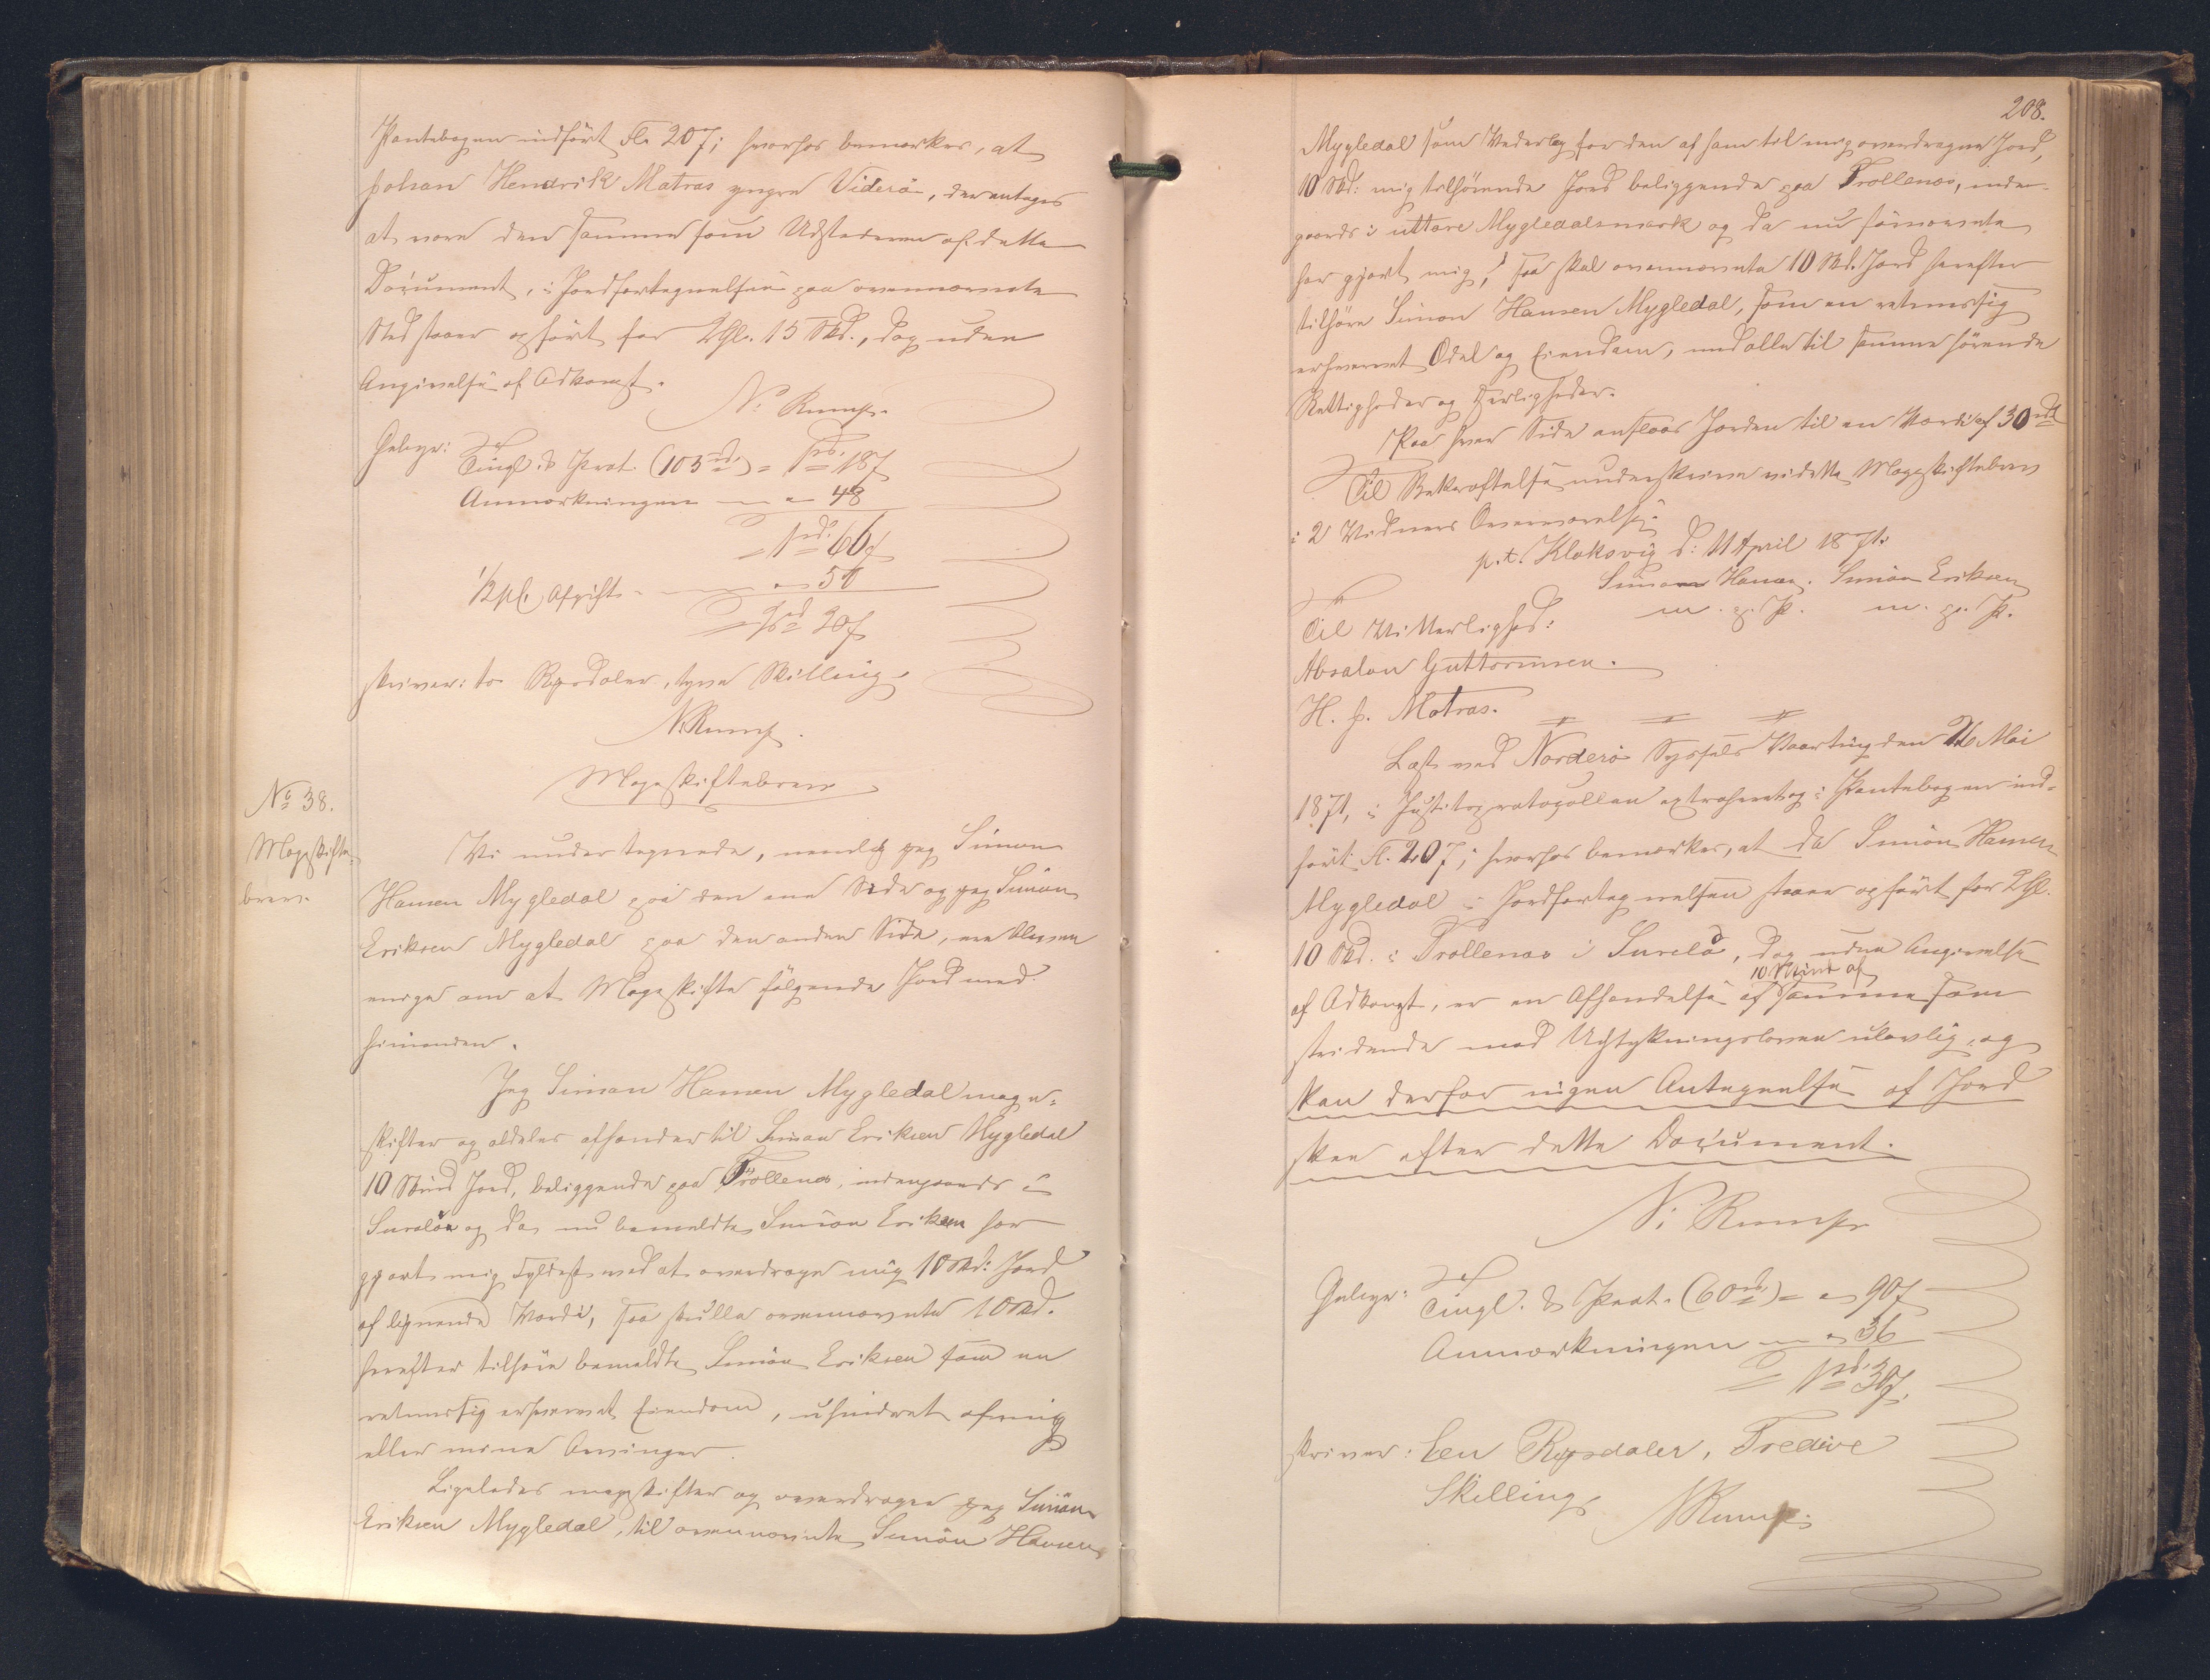 Pantebogen indført Fl. 207; hvorhos bemærkes, at
Johan Hendrik Matras yngre Viderö, der antages
at være den samme som Udstederen af dette
Document, i Jordfortegnelsen paa ovennævnte
Sted staaer opført for 2 Gl. 15 Skd., dog uden
Angivelse af Adkomst.
N: Rump.
Gebyr: Tingl. & Prot. (103 rd) = 1 rd. 18 ß
Anmærkningen — " 48
= 1 rd. 66 ß
½ pCt. Afgift — " 50
= 2 rd 20 ß
skriver: to Rigsdaler, tyve Skilling
N Rump.
Mageskiftebrev
No 38.
Mageskifte-
brev.
Vi undertegnede, nemlig jeg Simon
Hansen Mygledal paa den ene Side og jeg Simon
Eriksen Mygledal paa den anden Side, ere blevne
enige om at Mageskifte følgende Jord med
hinanden.
Jeg Simon Hansen Mygledal mage-
skifter og aldeles afhænder til Simon Eriksen Mygledal
10 Skind Jord, beliggende paa Trøllenes, indengjærds i
og da nu bemeldte Simon Eriksen har
gjort mig Fyldest ved at overdrage mig 10 Skd: Jord
af lignende Værdi, saa skulle ovennævnte 10 Skd.
herefter tilhøre bemeldte Simon Eriksen som en
retmæssig erhvervet Eiendom, uhindret af mig
eller mine Arvinger.
Ligeledes mageskifter og overdrager jeg Simon
Eriksen Mygledal, til ovennævnte Simon Hansen
208.
Mygledal som Vederlag for den af ham til mig overdragne Jord,
10 Skd: mig tilhørende Jord beliggende paa Trøllenes, inden-
gjærds i uttare Mygledalsmark og da nu førnævnte
har gjort mig, saa skal ovennævnte 10 Skd. Jord herefter
tilhøre Simon Hansen Mygledal, som en retmæssig
erhvervet Odel og Eiendom, med alle til samme hørende
Rettigheder og Herligheder.
Paa hver Side ansloes Jorden til en Værdi af 30 rd
Til Bekræftelse underskrive vi dette Mageskiftebrev
i 2 Vidners Overværelse.
p.t. Klaksvig d: 11 April 1871.
Simon Hansen. Simon Eriksen
m. p. P. m. p. P.
Til Vitterlighed:
Absalon Guttormsen.
H. J. Matras.
Læst ved Norderö Syssels Vaarting den 26 Mai
1871, i Justitsprotocollen extraheret og i Pantebogen ind-
ført Fl. 207; hvorhos bemærkes, at da Simon Hansen
Mygledal i Jordfortegnelsen staaer opført for 2 Gl.
10 Skd. i Trøllenes i dog uden Angivelse
10 Skind af
af Adkomst, er en Afhændelse af samme som
stridende mod Udstykningsloven ulovlig, og
kan derfor ingen Antegnelse af Jord
skee efter dette Document.
N: Rump
Gebyr: Tingl. & Prot. (60 rd) = " 90 ß
Anmærkningen — " 36
= 1 rd. 30 ß.
skriver: Een Rigsdaler, Tredive
Skilling
N Rump.